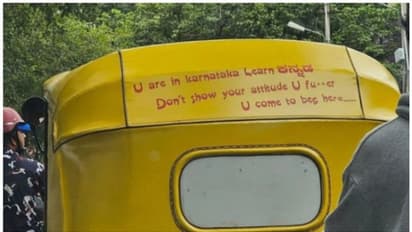 U are in karnataka Learn ಕನ್ನಡ
Don't show your attitude U fu**er
U come to beg here....